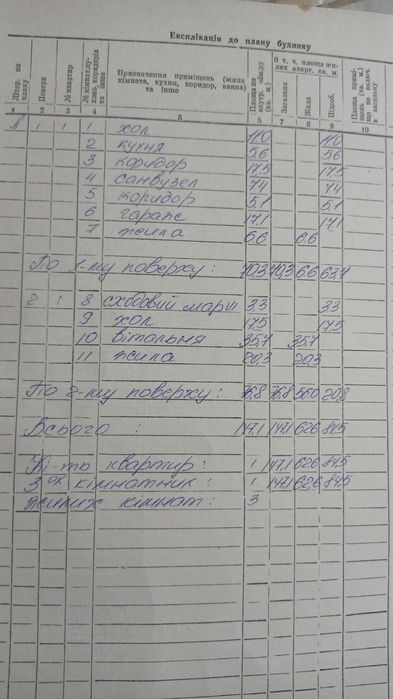 Експлікація до плану будинку
Літер. по плану | Поверх | № квартир | № кімнат, кухонь, коридорів та інше | Призначення приміщень (жила кімната, кухня, коридор, ванна) та інше | Площа по внутр. обміру (кв. м.) | В т. ч. площа жилих кварт. кв. м. | Загальна | Жила | Підсоб. | Площа приміщень (кв. м.) що не включ. в загальну
1 2 3 4 5 6 7 8 9 10
1 1 хол 11.0 11.0
2 кухня 5.6 5.6
3 коридор 17.5 17.5
4 санвузел 7.4 7.4
5 коридор 5.1 5.1
6 гараж 17.1 17.1
7 жила 6.6 6.6
По 1-му поверху: 70.3 70.3 6.6 63.7
8 сходовий марш 3.3 3.3
9 хол 17.5 17.5
10 вітальня 35.7 35.7
11 жила 20.3 20.3
По 2-му поверху: 76.8 76.8 56.0 20.8
Всього : 147.1 147.1 62.6 84.5
Кі-ть квартир: 1 147.1 62.6 84.5
3ох кімнатних: 1 147.1 62.6 84.5
Жилих кімнат: 3